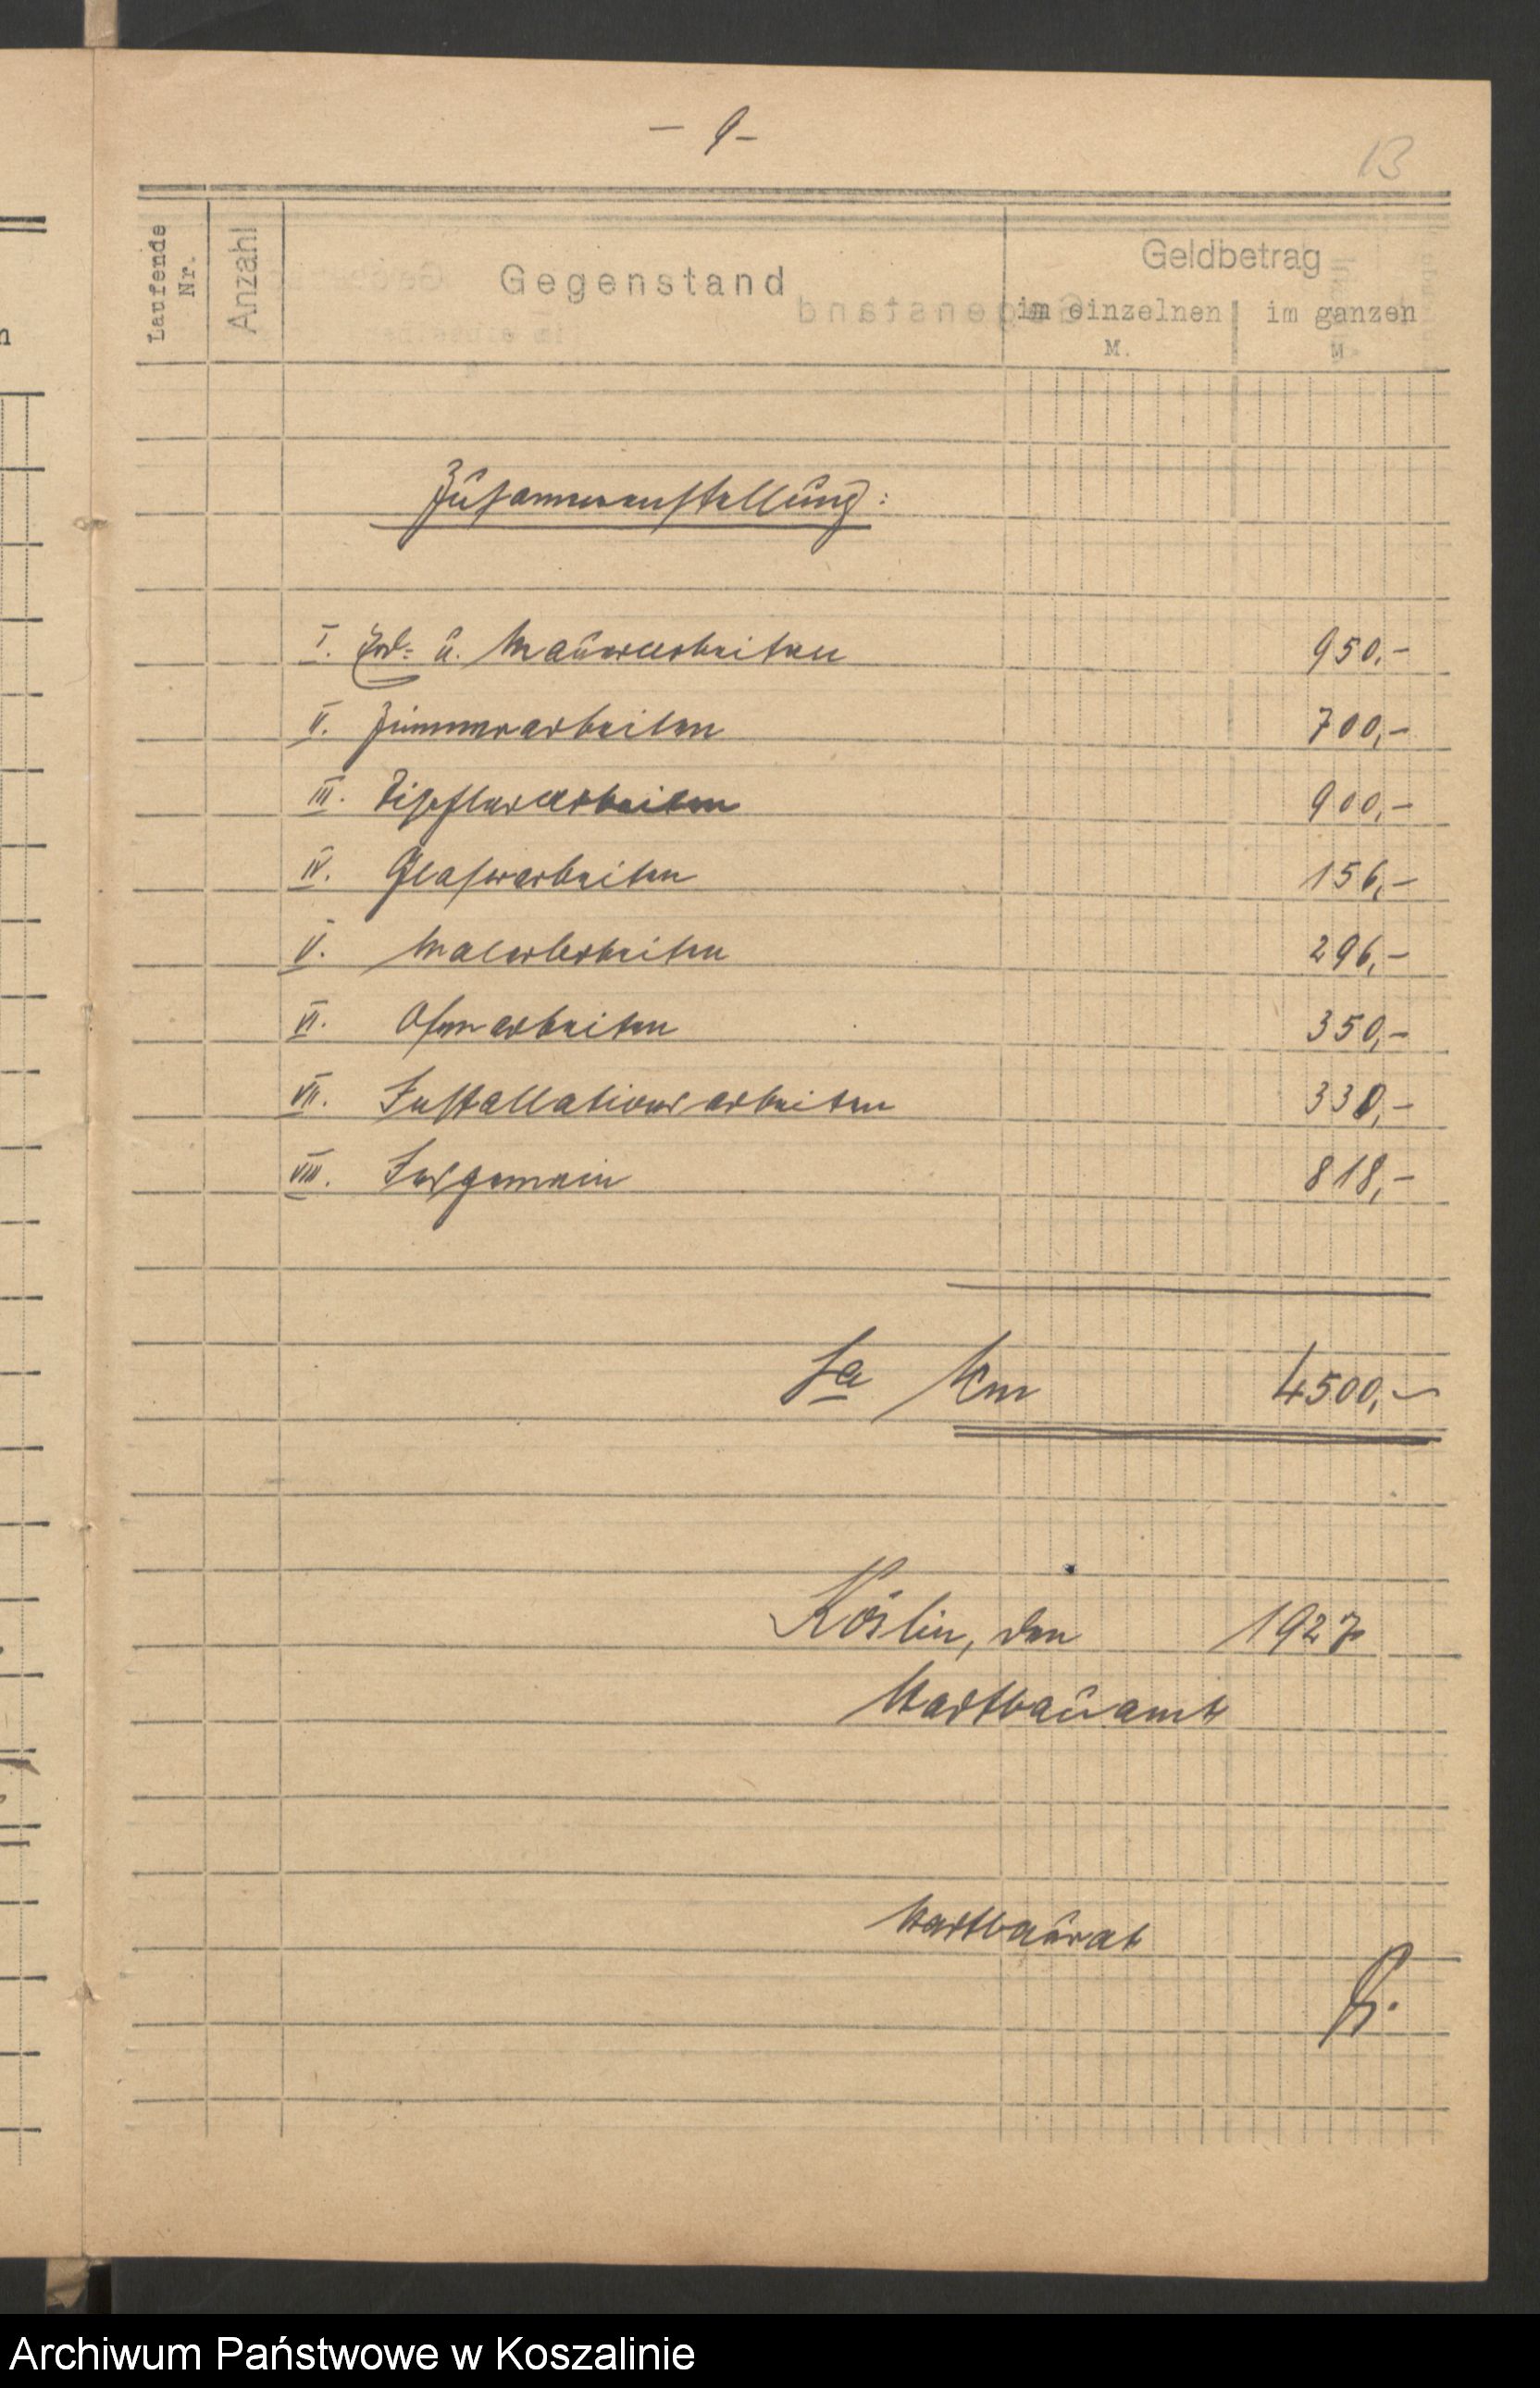 - 9 -
13
Laufende Nr.
Anzahl
Gegenstand
Geldbetrag
im einzelnen
im ganzen
M.
M
Zusammenstellung:
I. Erd- u. Maurerarbeiten 950,-
II. Zimmerarbeiten 700,-
III. Tischlerarbeiten 900,-
IV. Glaserarbeiten 156,-
V. Malerarbeiten 296,-
VI. Ofenarbeiten 350,-
VII. Installationsarbeiten 330,-
VIII. Insgemein 818,-
Sa 4500,-
Köslin, den 1927
Stadtbauamt
Stadtbaurat
Archiwum Państwowe w Koszalinie